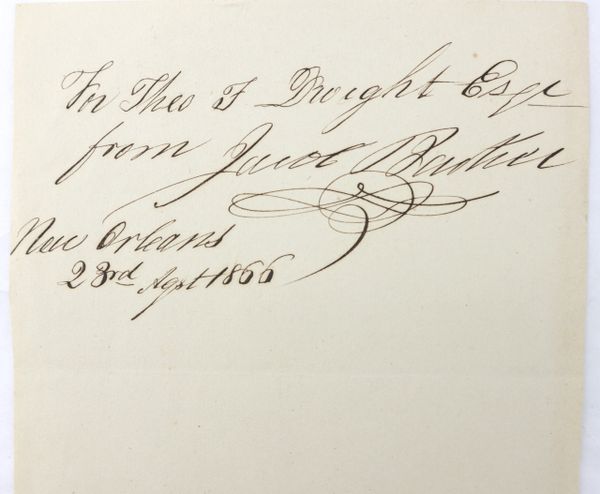 For Theo F Dwight Esqr
from Jacob Barker
New Orleans
23rd Apl 1866